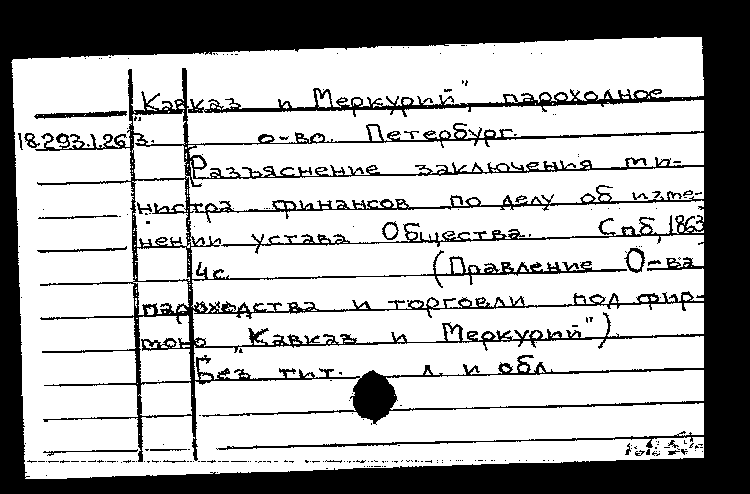 „Кавказ и Меркурий", пароходное
18.293.1.263. о-во. Петербург.
[Разъяснение заключения ми-
нистра финансов по делу об изме-
нении устава Общества. Спб, 1863]
4с. (Правление О-ва
пароходства и торговли под фир-
мою „Кавказ и Меркурий")
Без тит. л. и обл.